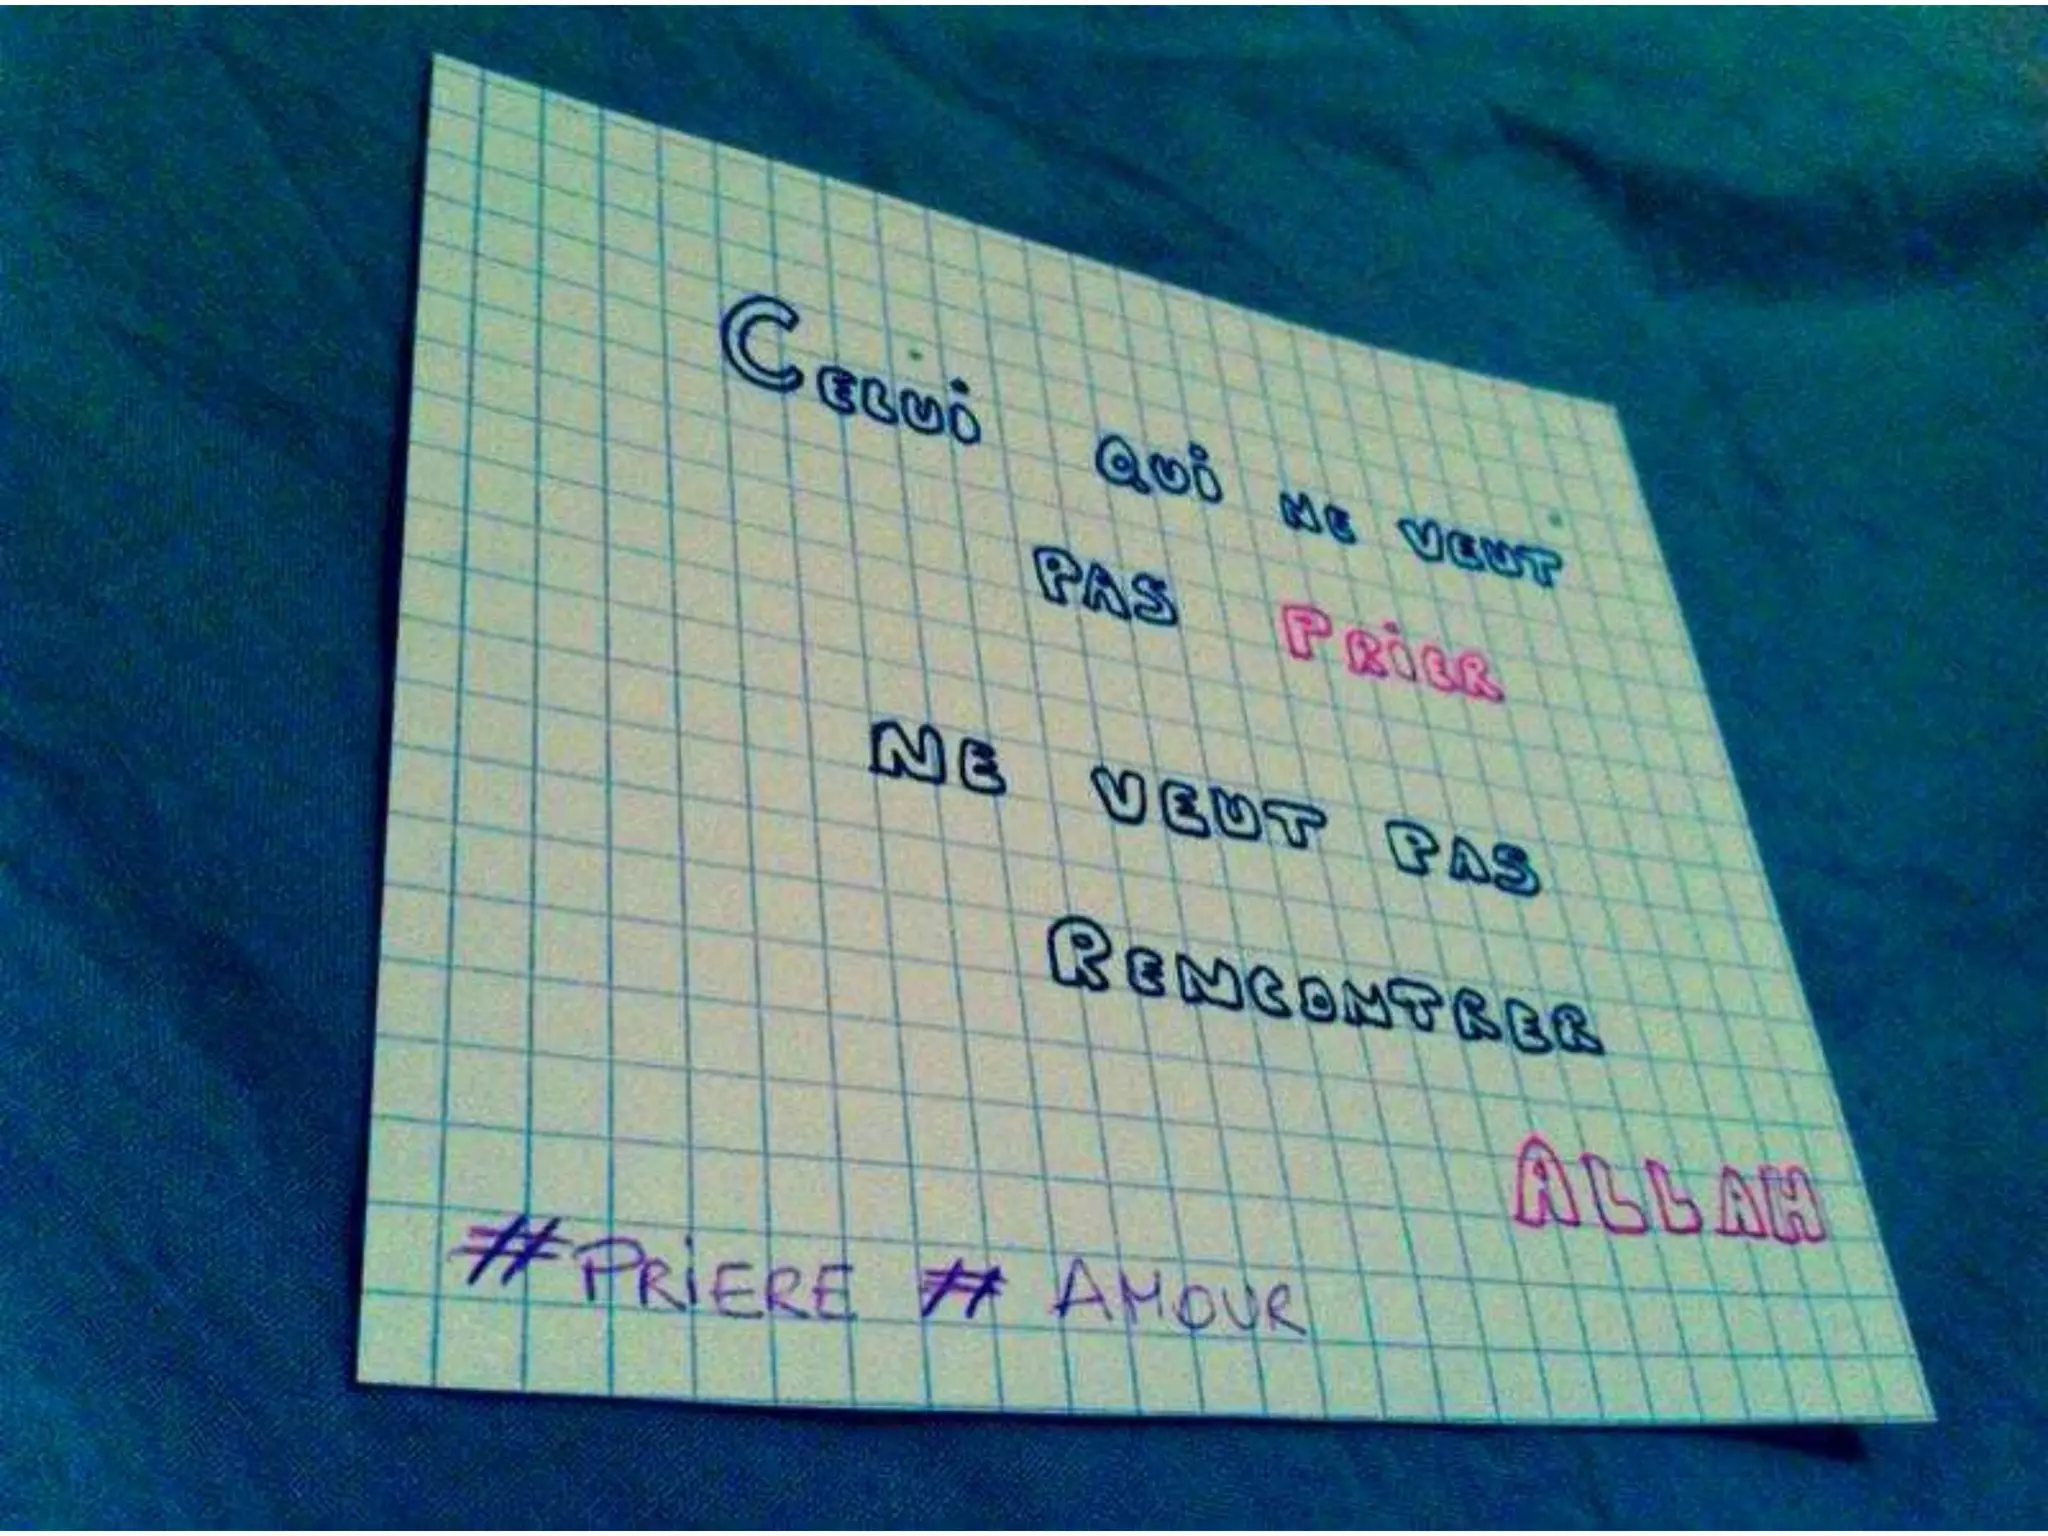 Celui qui ne veut
pas Prier
ne veut pas
Rencontrer
Allah
#PRiERE # AMOUR